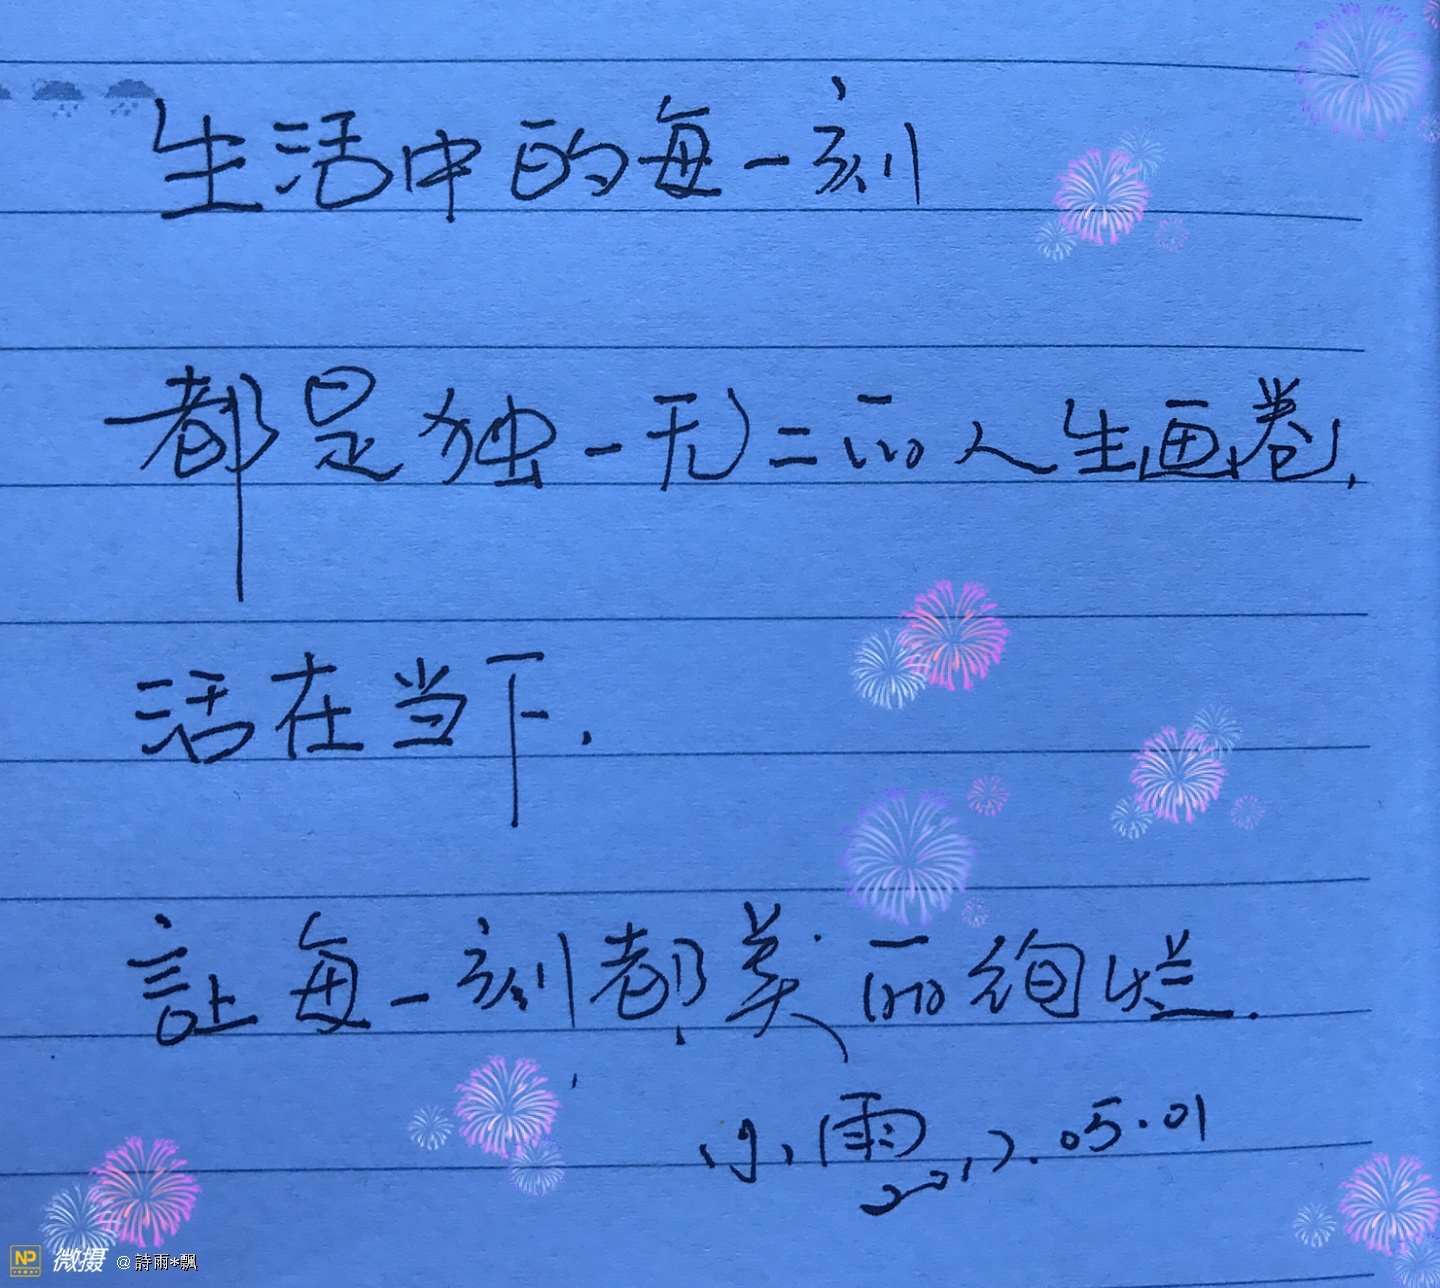 生活中的每一刻
都是独一无二的人生画卷,
活在当下.
讓每一刻都美丽绚烂.
小雨 2017.05.01
NP 微摄 @詩雨*飄